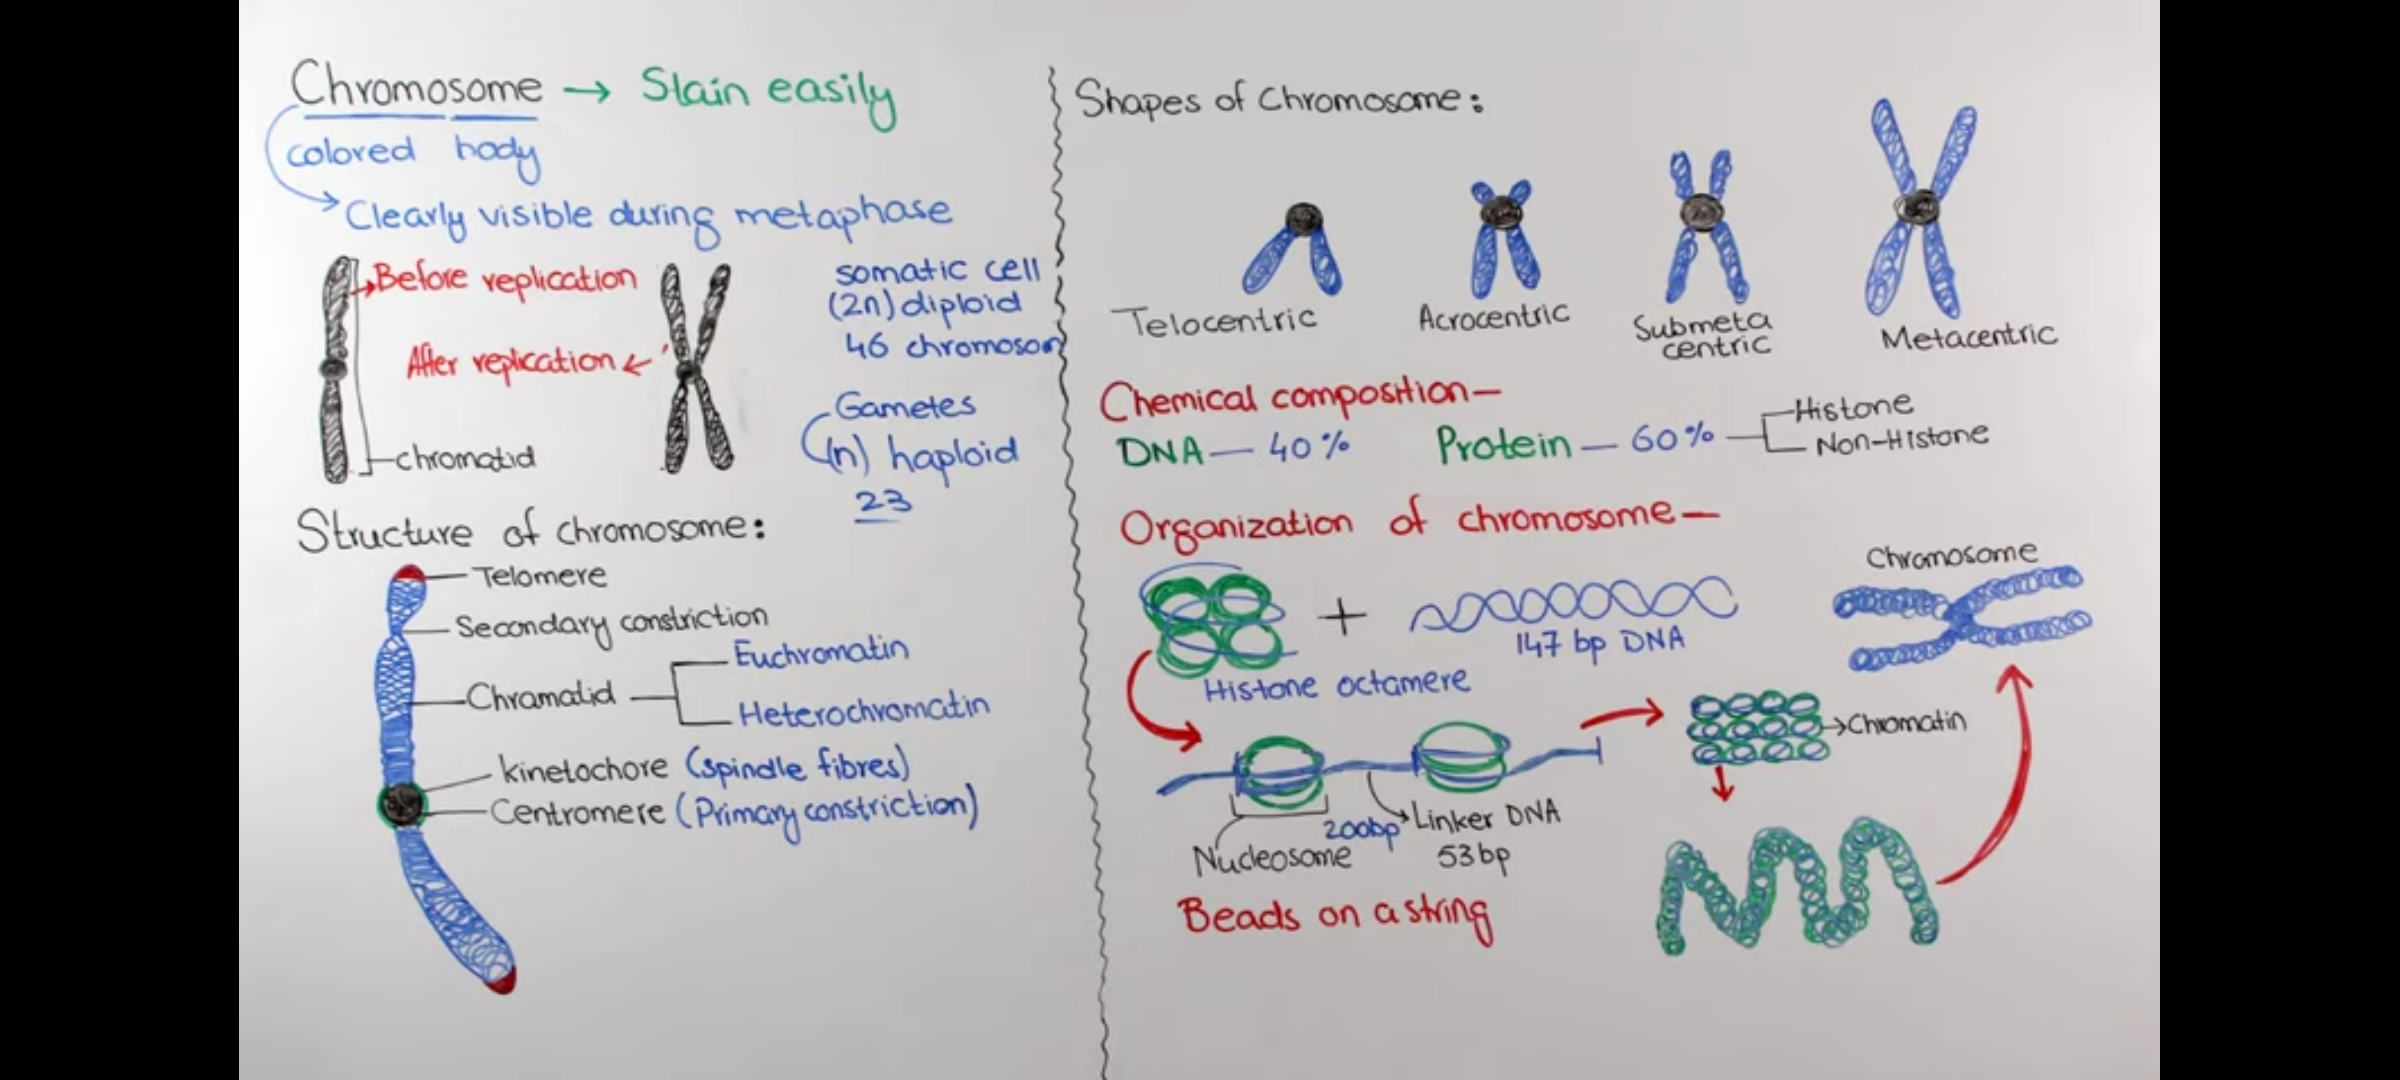 Chromosome → Stain easily
colored body
Clearly visible during metaphase
Before replication
After replication
chromatid
somatic cell
(2n) diploid
46 chromosom
Gametes
(n) haploid
23
Structure of chromosome:
Telomere
Secondary constriction
Chromatid
Euchromatin
Heterochromatin
kinetochore (spindle fibres)
Centromere (Primary constriction)
Shapes of Chromosome:
Telocentric
Acrocentric
Submeta
centric
Metacentric
Chemical composition—
DNA — 40%
Protein — 60%
Histone
Non-Histone
Organization of chromosome—
Histone octamere
+
147 bp DNA
Chromosome
Chromatin
Nucleosome
200bp
Linker DNA
53bp
Beads on a string